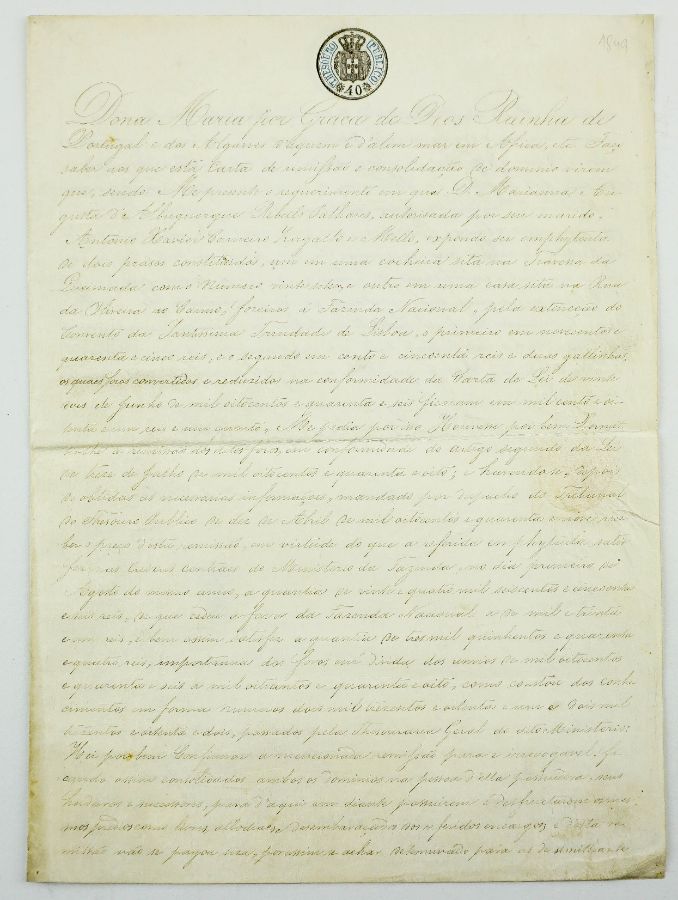 THESOURO PUBLICO
40
1849
Dona Maria por Graça de Deos Rainha de
Portugal e dos Algarves d'aquem e d'alem mar em Africa, etc. Faço
saber aos que esta Carta de remissão e consolidação de dominio virem
que, sendo-Me presente o requerimento em que D. Marianna Au-
gusta d'Albuquerque authorisada por seu marido,
Antonio Xavier e Mello, expondo ser emphyteuta
de dois prasos constituidos, um em uma cocheira sita na Travessa da
Queimada com o Numero vinte sete e outro em uma casa sita na Rua
da ao Carmo, foreiros á Fazenda Nacional, pela extincção do
Convento da Santissima Trindade de Lisboa, o primeiro em novecentos e
quarenta e cinco reis, e o segundo em cento e cincoenta reis e duas gallinhas,
os quaes foros convertidos e reduzidos na conformidade da Carta de Lei de vinte
dois de Junho de mil oitocentos e quarenta e seis ficaram em mil cento e
e um reis e um quarto, Me pedia por isso Houvesse por bem Permit-
tir-lhe a remissão dos ditos foros, em conformidade do artigo segundo da Lei
de treze de Julho de mil oitocentos e quarenta e oito; e havendo-se, depois
de obtidas as necessarias informações, mandado por despacho do Tribunal
do Thesouro Publico de dez de Abril de mil oitocentos e quarenta e nove, rece-
ber o preço d'esta remissão, em virtude do que a referida emphyteuta satis-
fez nos Cofres Centraes do Ministerio da Fazenda no dia primeiro de
Agosto do mesmo anno, a quantia de vinte e quatro mil seiscentos e cincoenta
e reis, de que cedeu a favor da Fazenda Nacional a de mil e trinta
e um reis, e bem assim satisfez a quantia de tres mil quinhentos e quarenta
e quatro reis, importancia dos foros em divida dos annos de mil oitocentos
e quarenta e seis a mil oitocentos e quarenta e oito, como constou dos conhe-
cimentos em forma numeros dois mil trezentos e oitenta e um e dois mil
trezentos e oitenta e dois, passados pela Thesouraria Geral do dito Ministerio:
Hei por bem Confirmar a mencionada remissão para e irrevogavel, fi-
cando assim consolidados ambos os dominios na pessoa d'ella, seus
herdeiros e successores, para d'aqui em diante possuirem e desfructarem os mes-
mos predios como livres allodiaes, desembaraçados dos referidos encargos; e d'esta re-
missão não se pagou siza, por assim se achar determinado para as de similhante